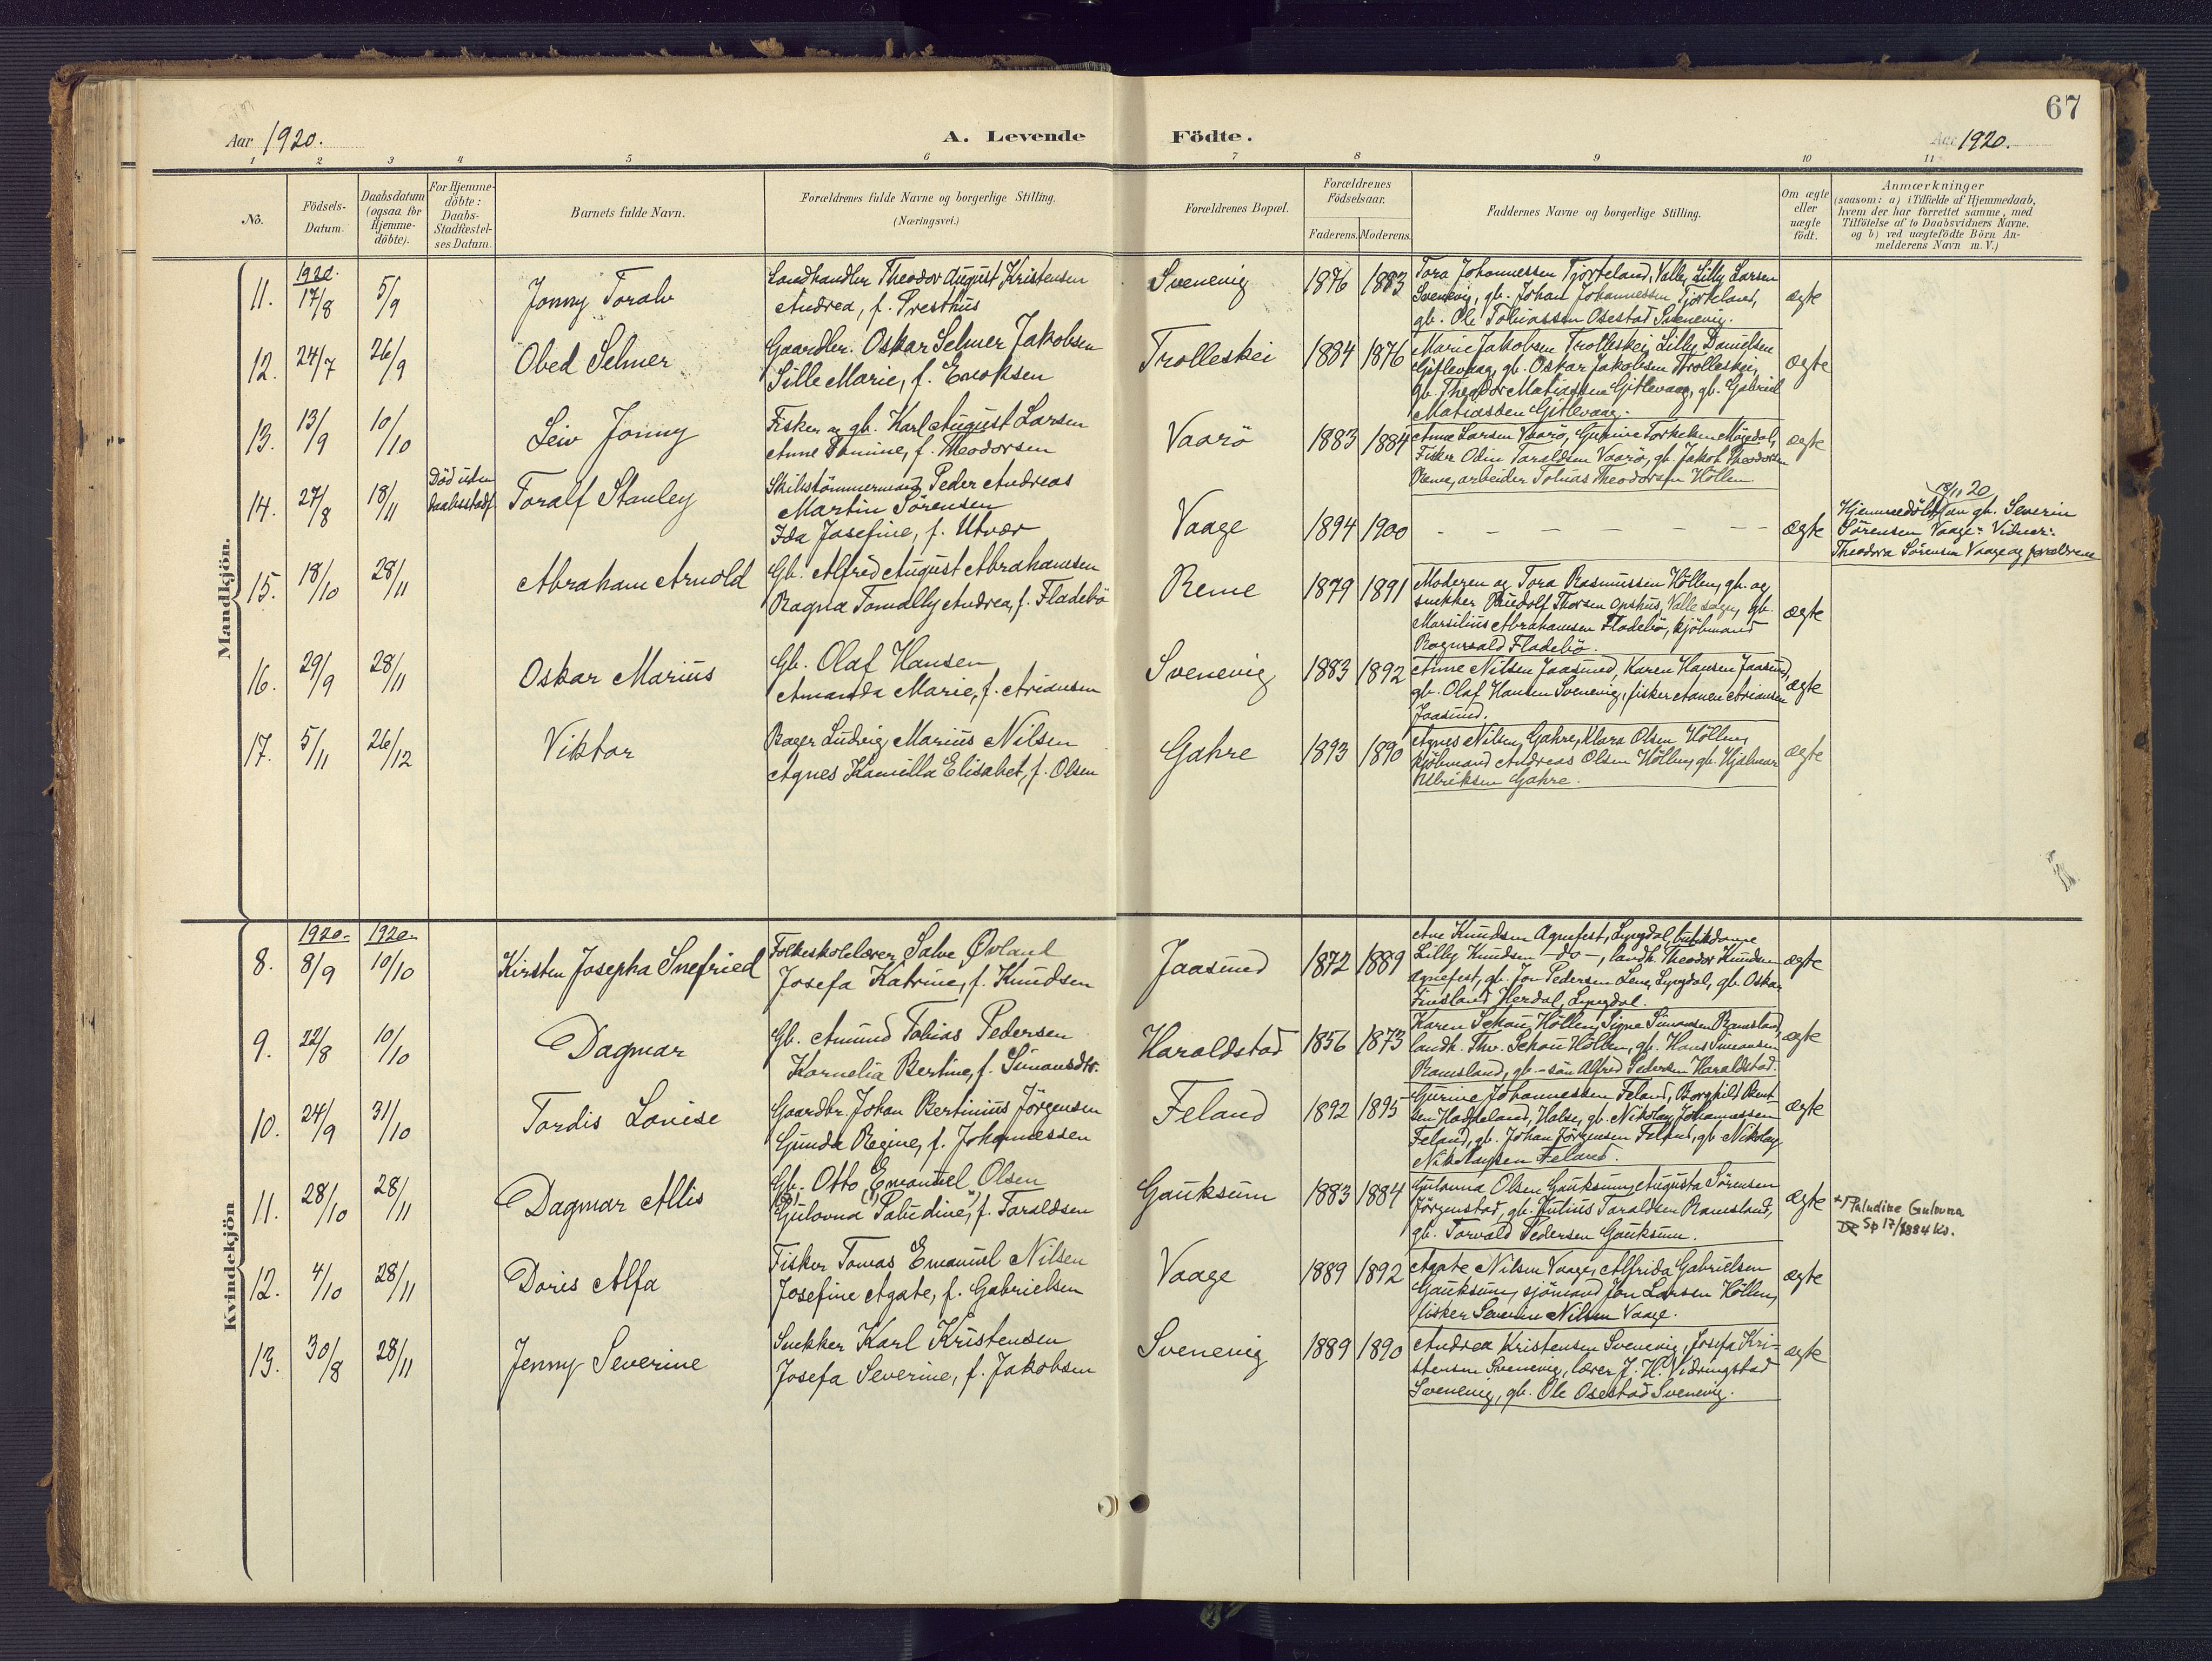 67
Aar 1920.
A. Levende Födte.
Aar 1920.
1 2 3 4 5 6 7 8 9 10 11
No.
Födsels-
Datum.
Daabsdatum
(ogsaa for
Hjemme-
döbte).
For Hjemme-
döbte:
Daabs-
Stadfæstel-
ses Datum.
Barnets fulde Navn.
Forældrenes fulde Navne og borgerlige Stilling.
(Næringsvei.)
Forældrenes Bopæl.
Forældrenes
Födselsaar.
Faderens. Moderens.
Faddernes Navne og borgerlige Stilling.
Om ægte
eller
uægte
födt.
Anmærkninger
(saasom: a) i Tilfælde af Hjemmedaab,
hvem der har forrettet samme, med
Tilföielse af to Daabsvidners Navne.
og b) ved uægtefödte Börn An-
melderens Navn m.V.)
Mandkjön.
11.
1920.
17/8
5/9
Jonny Toralv
Landhandler Theodor August Kristensen
Andrea, f. Presthus
Svenevig
1876 1883
Tora Johannessen Tjorteland, Valle, Lilly Larsen
Svenevig, gb. Johan Johannessen Tjorteland,
gb. Ole Tobiassen Osestad Svenevig.
ægte
12.
24/7
26/9
Obed Selmer
Gaardbr. Oskar Selmer Jakobsen
Sille Marie, f. Enoksen
Trolleskei
1884 1876
Marie Jakobsen Trolleskei, Lilly Danielsen
Gitlevaag, gb. Oskar Jakobsen Trolleskei,
gb. Theodor Matiassen Gitlevaag, gb. Gabriel
Matiassen Gitlevaag.
ægte
13.
13/9
10/10
Leiv Jonny
Fisker og gb. Karl August Larsen
Anne Tomine, f. Theodorsen
Vaarö
1883 1884
Anne Larsen Vaarö, Gurine Torkelsen
Fisker Odin Taraldsen Vaarö, gb. Jakob Theodorsen
Reme, arbeider Tobias Theodorsen Höllen
ægte
14.
27/8
18/11
Död uten
daabsstadf.
Toralf Stanley
Skibstömmermand Peder Andreas
Martin Sörensen
Ida Josefine, f. Utvær
Vaage
1894 1900
- - - - - - -
ægte
18/11 20
Hjemmedöbt av gb. Severin
Sörensen Vaage. Vidner:
Theodora Sörensen Vaage og forældrene
15.
18/10
28/11
Abraham Arnold
Gb. Alfred August Abrahamsen
Ragna Tomally Andrea, f. Fladebö
Reme
1879 1891
Moderen og Tora Rasmussen Höllen, gb. og
snekker Rudolf Thorsen Opshus, Valle sogn, gb.
Marsilius Abrahamsen Fladebö, kjöbmand
Ragnvald Fladebö.
ægte
16.
29/9
28/11
Oskar Marius
Gb. Olaf Hansen
Amanda Marie, f. Ariansen
Svenevig
1883 1892
Anne Nilsen Jaasund, Karen Hansen Jaasund,
gb. Olaf Hansen Svenevig, fisker Anen Ariansen
Jaasund.
ægte
17.
5/11
26/12
Viktor
Bager Ludvig Marius Nilsen
Agnes Kamilla Elisabet, f. Olsen
Gahre
1893 1890
Agnes Nilsen Gahre, Klara Olsen Höllen,
kjöbmand Andreas Olsen Höllen, gb. Hjalmar
Ulriksen Gahre.
ægte
Kvindekjön
8.
1920.
8/9
1920.
10/10
Kirsten Josepha Snefried
Folkeskolelærer Salve Øvland
Josefa Katrine, f. Knudsen
Jaasund
1872 1889
Ane Knudsen Agnefest, Lyngdal, butikdame
Lilly Knudsen -do-, landh. Theodor Knudsen
Agnefest, gb. Jon Pedersen Lene, Lyngdal, gb. Oskar
Finsland Herdal, Lyngdal.
ægte
9.
22/8
10/10
Dagmar
Gb. Amund Tobias Pedersen
Kornelia Bertine, f. Simonsdtr.
Haraldstad
1856 1873
Karen Schau Höllen, Signe Simonsen Ramsland,
landh. Thv. Schau Höllen, gb. Hans Simonsen
Ramsland, gb.-sön Alfred Pedersen Haraldstad.
ægte
10.
24/9
31/10
Tordis Lovise
Gaardbr. Johan Bertinius Jörgensen
Gunda Regine, f. Johannessen
Feland
1892 1895
Gurine Johannessen Feland, Borghild Bent-
sen Haddeland, Halse, gb. Nikolay Johannessen
Feland, gb. Johan Jörgensen Feland, gb. Nikolay
Nikolaysen Feland.
ægte
11.
28/10
28/11
Dagmar Allis
Gb. Otto Emanuel Olsen
Gulovna Paludine, f. Taraldsen
Gauksum
1883 1884
Gulovna Olsen Gauksum, Augusta Sörensen
Jörgenstad, gb. Julius Taraldsen Ramsland,
gb. Torvald Pedersen Gauksum.
ægte
*) Paludine Gulovna
Sp 17/1884 Ko.
12.
4/10
28/11
Doris Alfa
Fisker Tomas Emanuel Nilsen
Josefine Agate, f. Gabrielsen
Vaage
1889 1892
Agate Nilsen Vaage, Alfrida Gabrielsen
Gauksum, sjömand Jon Larsen Höllen,
fisker Severin Nilsen Vaage.
ægte
13.
30/8
28/11
Jenny Severine
Snekker Karl Kristensen
Josefa Severine, f. Jakobsen
Svenevig
1889 1890
Andrea Kristensen Svenevig, Josefa Kri-
stensen Svenevig, lærer J. H. Vidringstad
Svenevig, gb. Ole Osestad Svenevig.
ægte